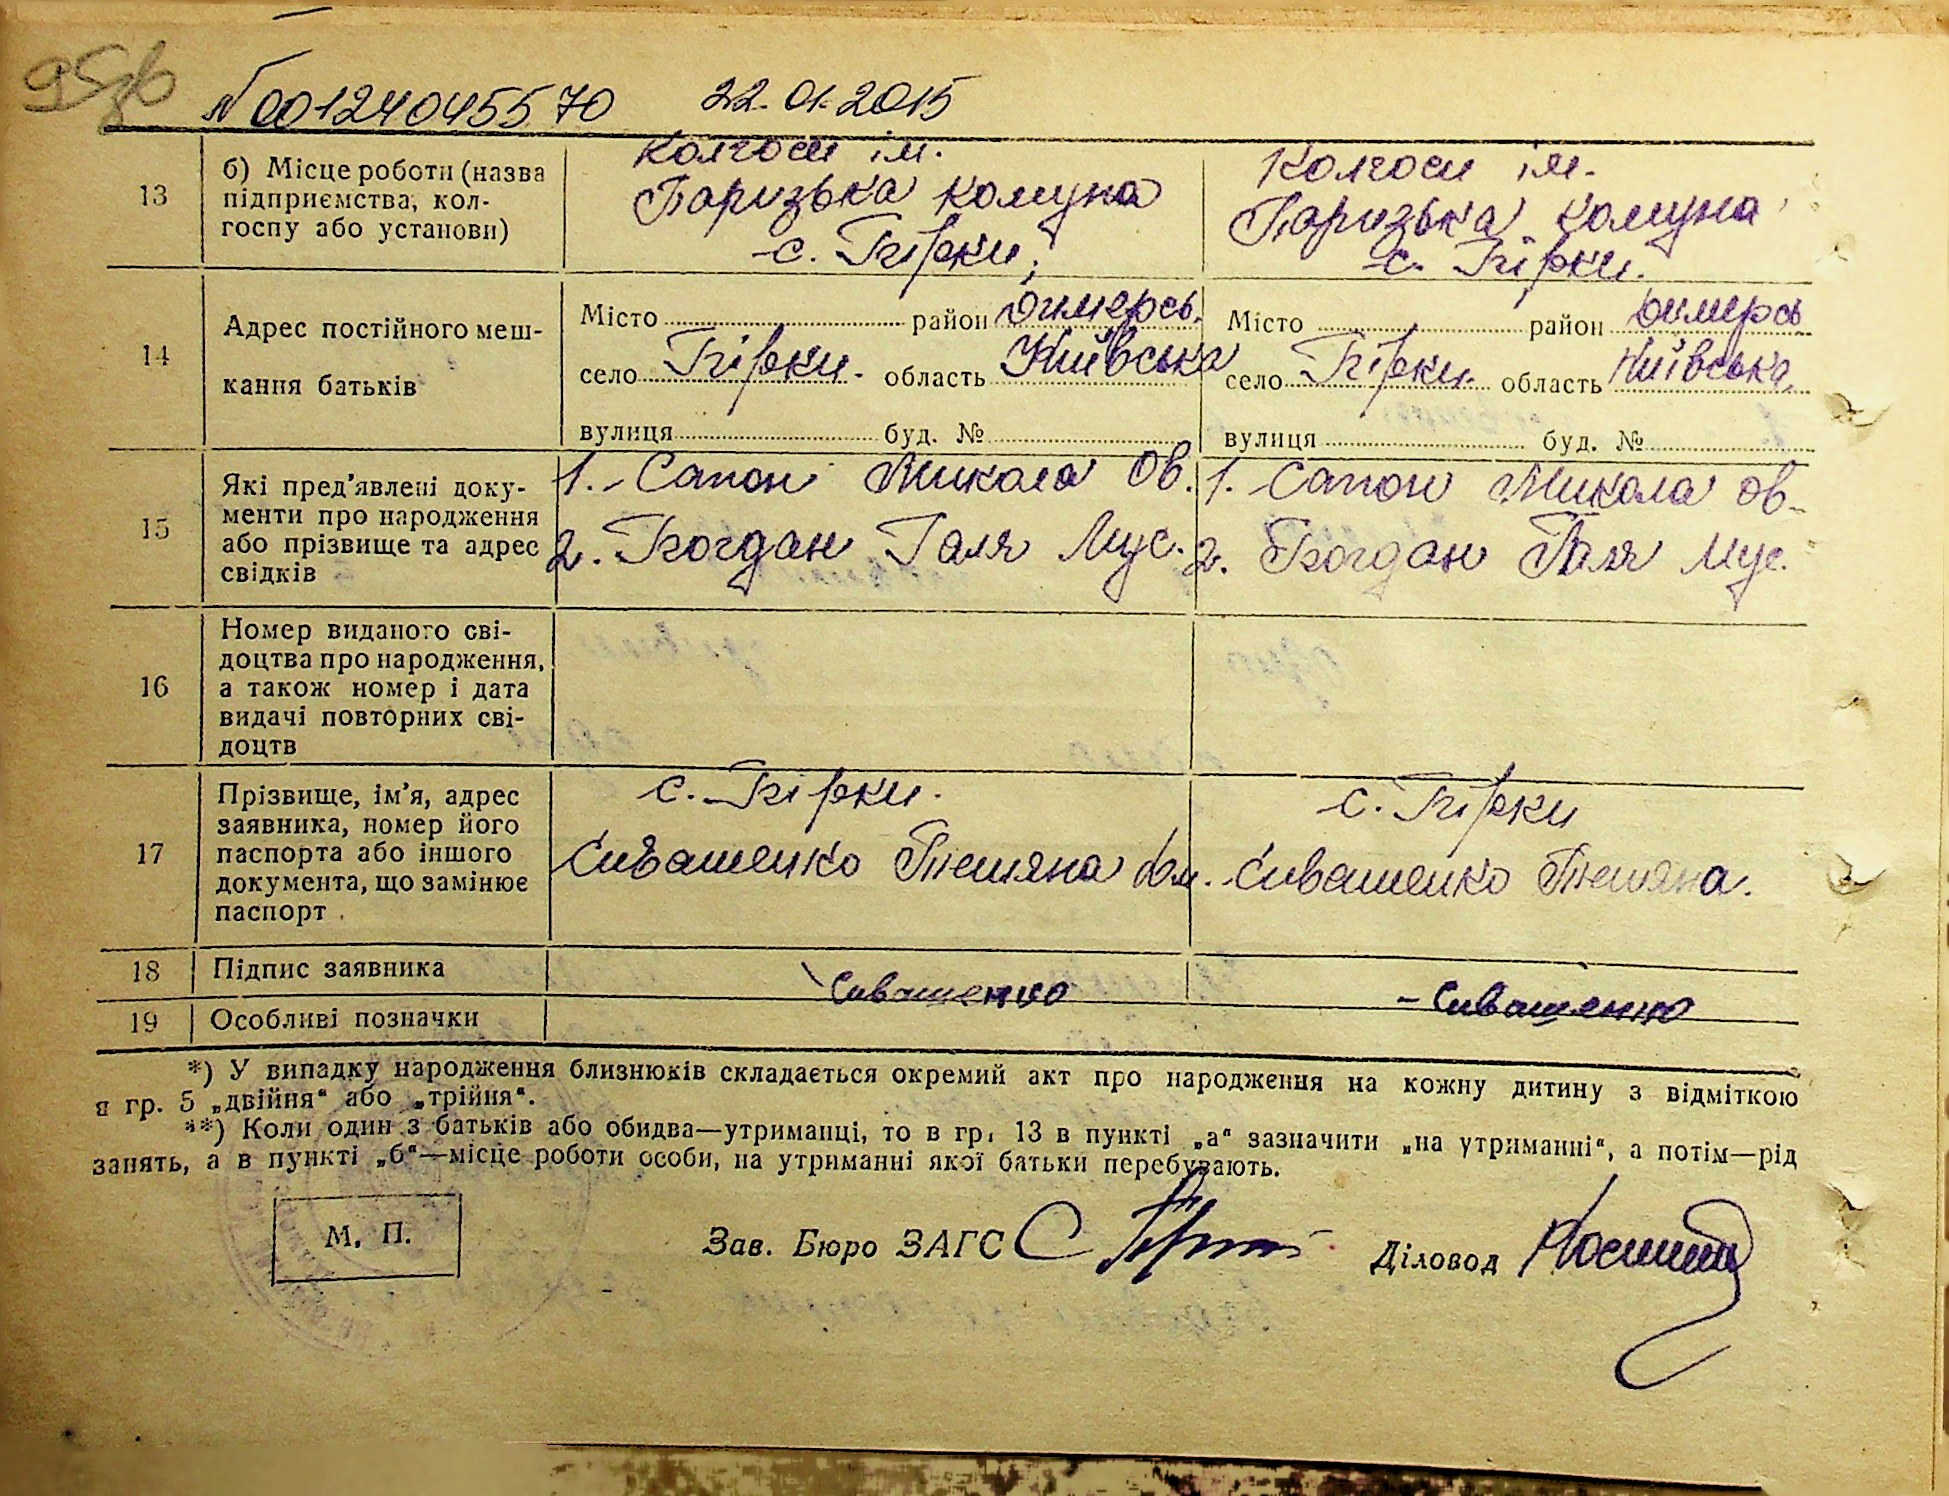 95зв
№00124045570 22.01.2015
13
б) Місце роботи (назва
підприємства, кол-
госпу або установи)
Колгосп ім.
Паризька комуна
с. Гірки;
Колгосп ім.
Паризька комуна
с. Гірки.
14
Адрес постійного меш-
кання батьків
Місто район Димерсь.
село Гірки. область Київська
вулиця буд. №
Місто район Димерсь
село Гірки. область Київська
вулиця буд. №
15
Які пред'явлені доку-
менти про народження
або прізвище та адрес
свідків
1. Сапон Микола Ов.
2. Богдан Галя Мус.
1. Сапон Микола Ов.
2. Богдан Галя Мус.
16
Номер виданого сві-
доцтва про народження,
а також номер і дата
видачі повторних сві-
доцтв
17
Прізвище, ім'я, адрес
заявника, номер його
паспорта або іншого
документа, що замінює
паспорт
с. Гірки.
Сивашенко Тетяна
с. Гірки
Сивашенко Тетяна.
18
Підпис заявника
Сивашенко
- Сивашенко
19
Особливі позначки
*) У випадку народження близнюків складається окремий акт про народження на кожну дитину з відміткою
в гр. 5 „двійня“ або „трійня“.
**) Коли один з батьків або обидва—утриманці, то в гр. 13 в пункті „а“ зазначити „на утриманні“, а потім—рід
занять, а в пункті „б“—місце роботи особи, на утриманні якої батьки перебувають.
М. П.
Зав. Бюро ЗАГС
Діловод